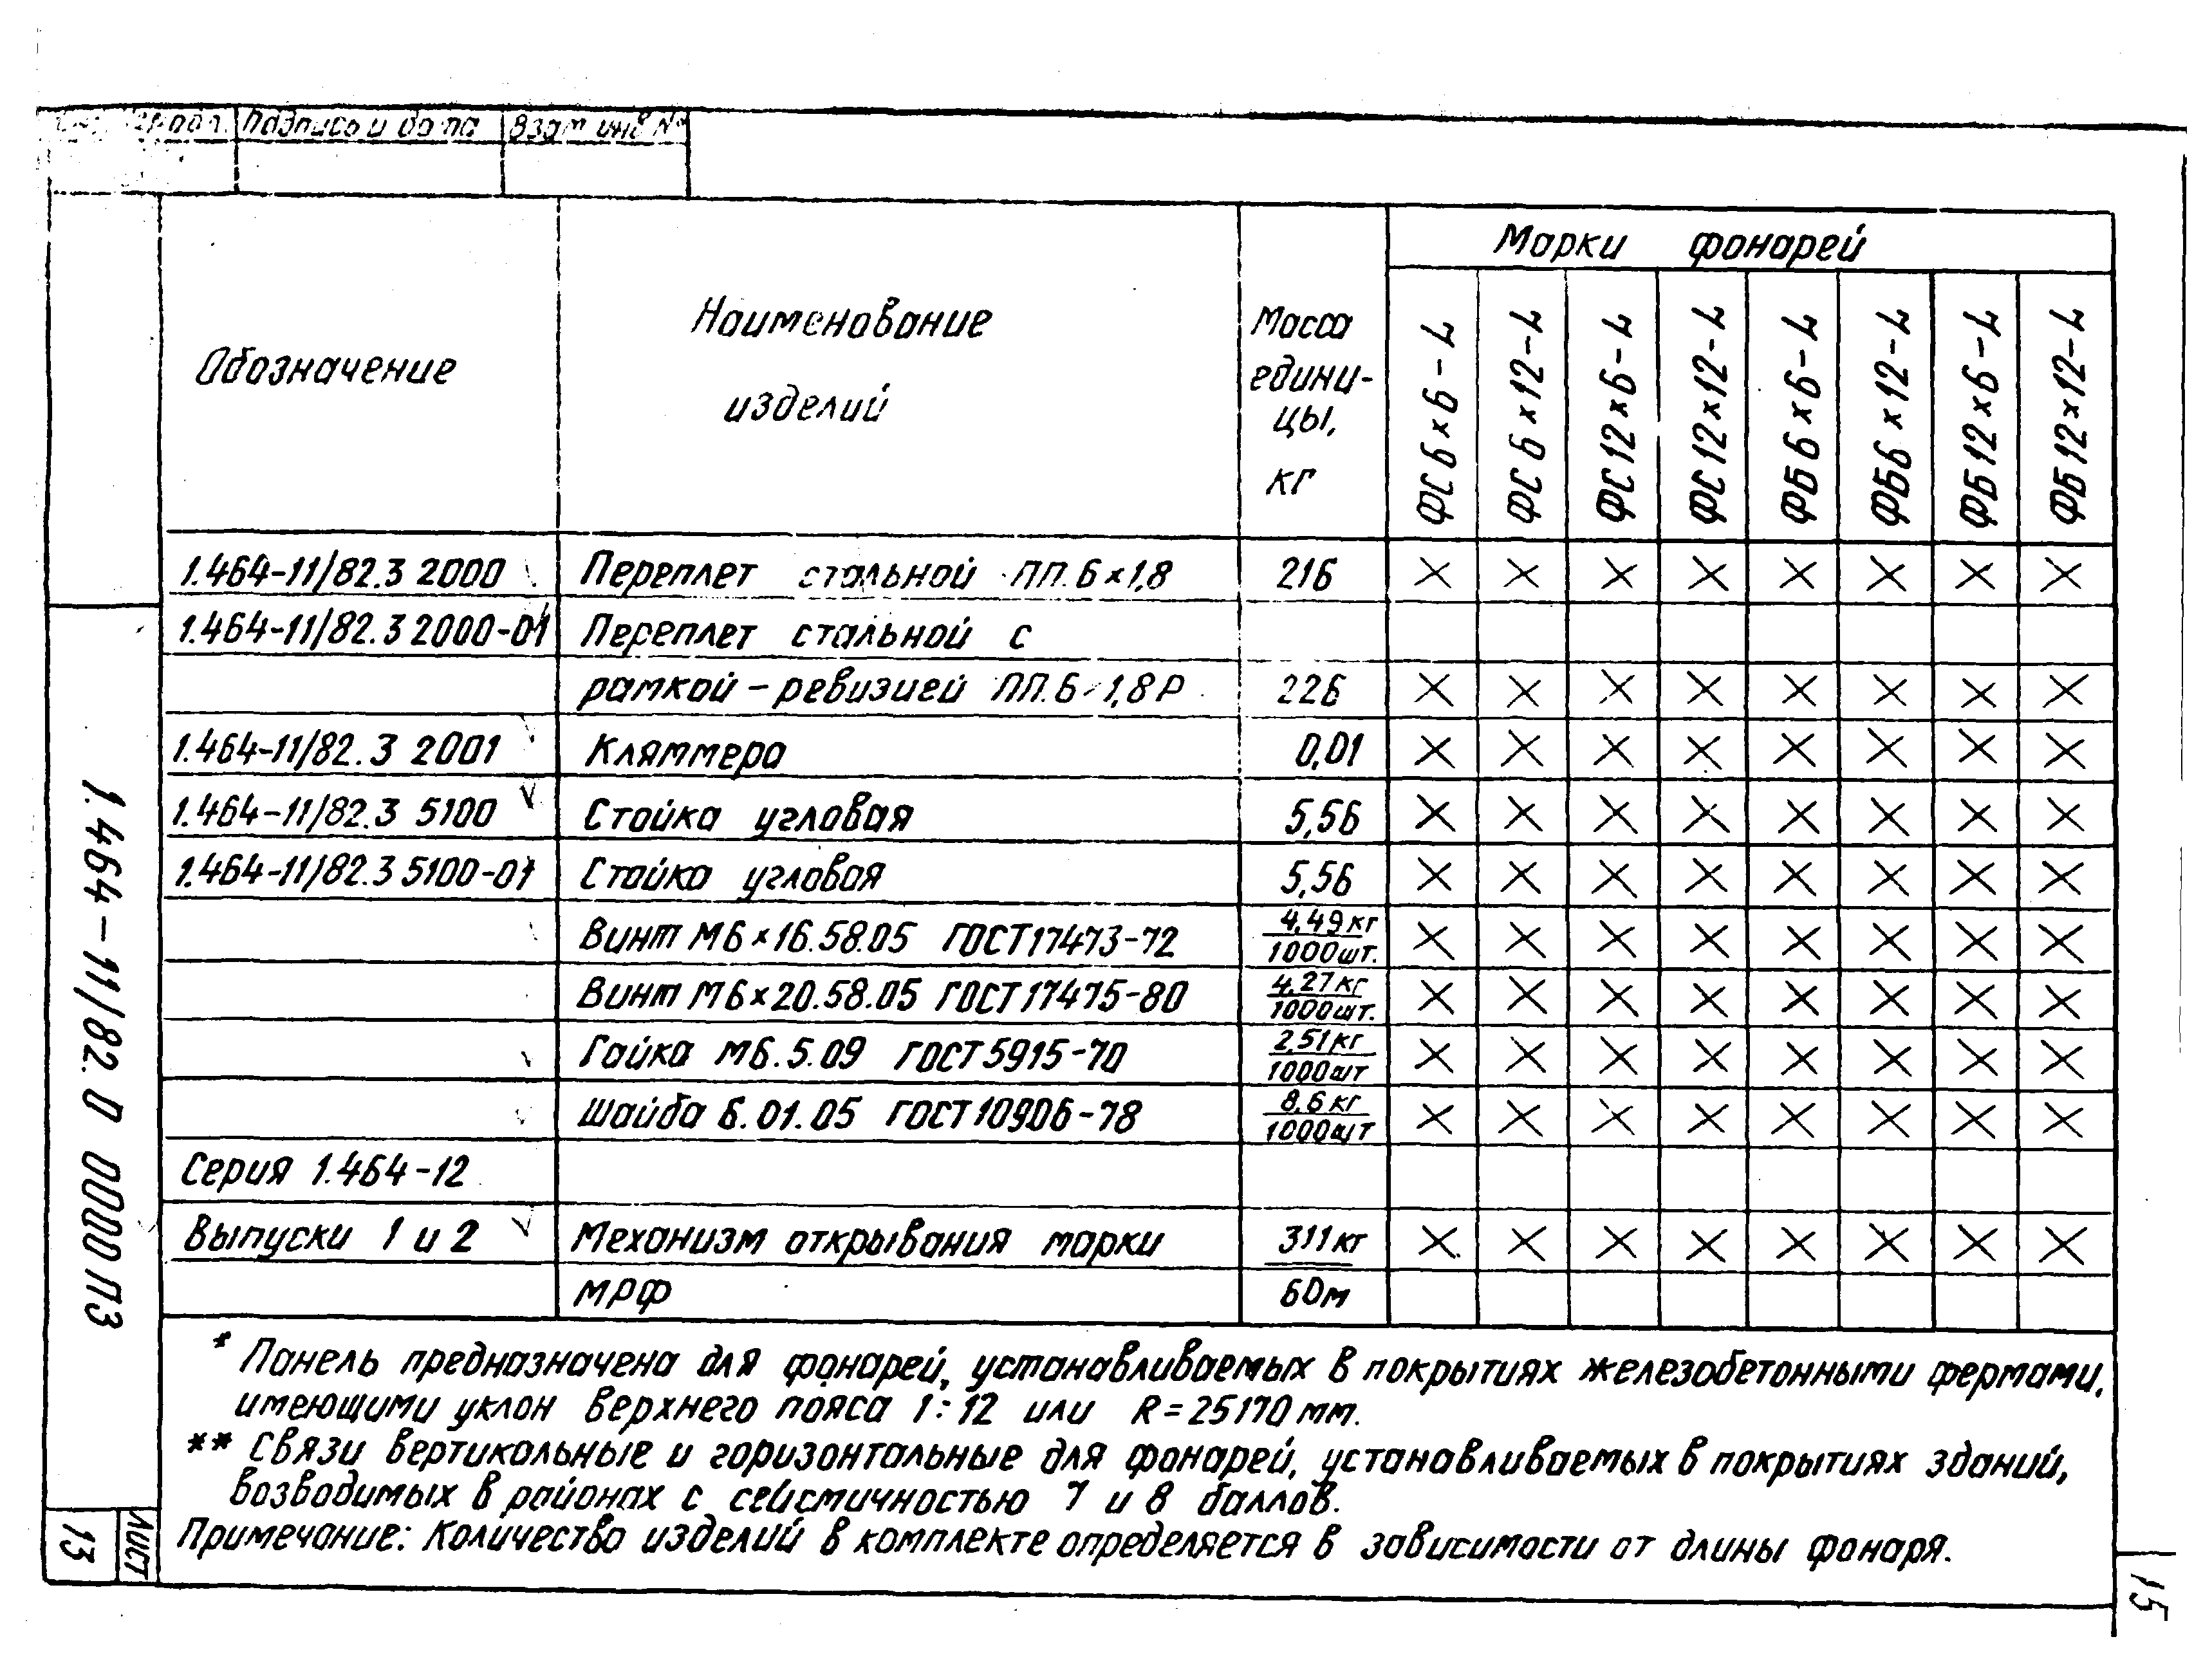 подл. Подпись и дата Взам инв №
Обозначение
Наименование
изделий
Масса
едини-
цы,
кг
Марки фонарей
ФС6×6-L
ФС6×12-L
ФС12×6-L
ФС12×12-L
ФБ6×6-L
ФБ6×12-L
ФБ12×6-L
ФБ12×12-L
1.464-11/82.3 2000 Переплет стальной ПП.6×1,8 216 × × × × × × × ×
1.464-11/82.3 2000-01 Переплет стальной с
рамкой-ревизией ПП.6×1,8Р 226 × × × × × × × ×
1.464-11/82.3 2001 Кляммера 0,01 × × × × × × × ×
1.464-11/82.3 5100 Стойка угловая 5,56 × × × × × × × ×
1.464-11/82.3 5100-01 Стойка угловая 5,56 × × × × × × × ×
Винт М6×16.58.05 ГОСТ17473-72 4,49кг/1000шт. × × × × × × × ×
Винт М6×20.58.05 ГОСТ17475-80 4,27кг/1000шт. × × × × × × × ×
Гайка М6.5.09 ГОСТ5915-70 2,51кг/1000шт × × × × × × × ×
Шайба 6.01.05 ГОСТ10906-78 8,6кг/1000шт × × × × × × × ×
Серия 1.464-12
Выпуски 1 и 2 Механизм открывания марки 311кг × × × × × × × ×
МРФ 60м
* Панель предназначена для фонарей, устанавливаемых в покрытиях железобетонными фермами,
имеющими уклон верхнего пояса 1:12 или R=25170мм.
** Связи вертикальные и горизонтальные для фонарей, устанавливаемых в покрытиях зданий,
возводимых в районах с сейсмичностью 7 и 8 баллов.
Примечание: Количество изделий в комплекте определяется в зависимости от длины фонаря.
1.464-11/82.0 0000ПЗ
Лист
13
15